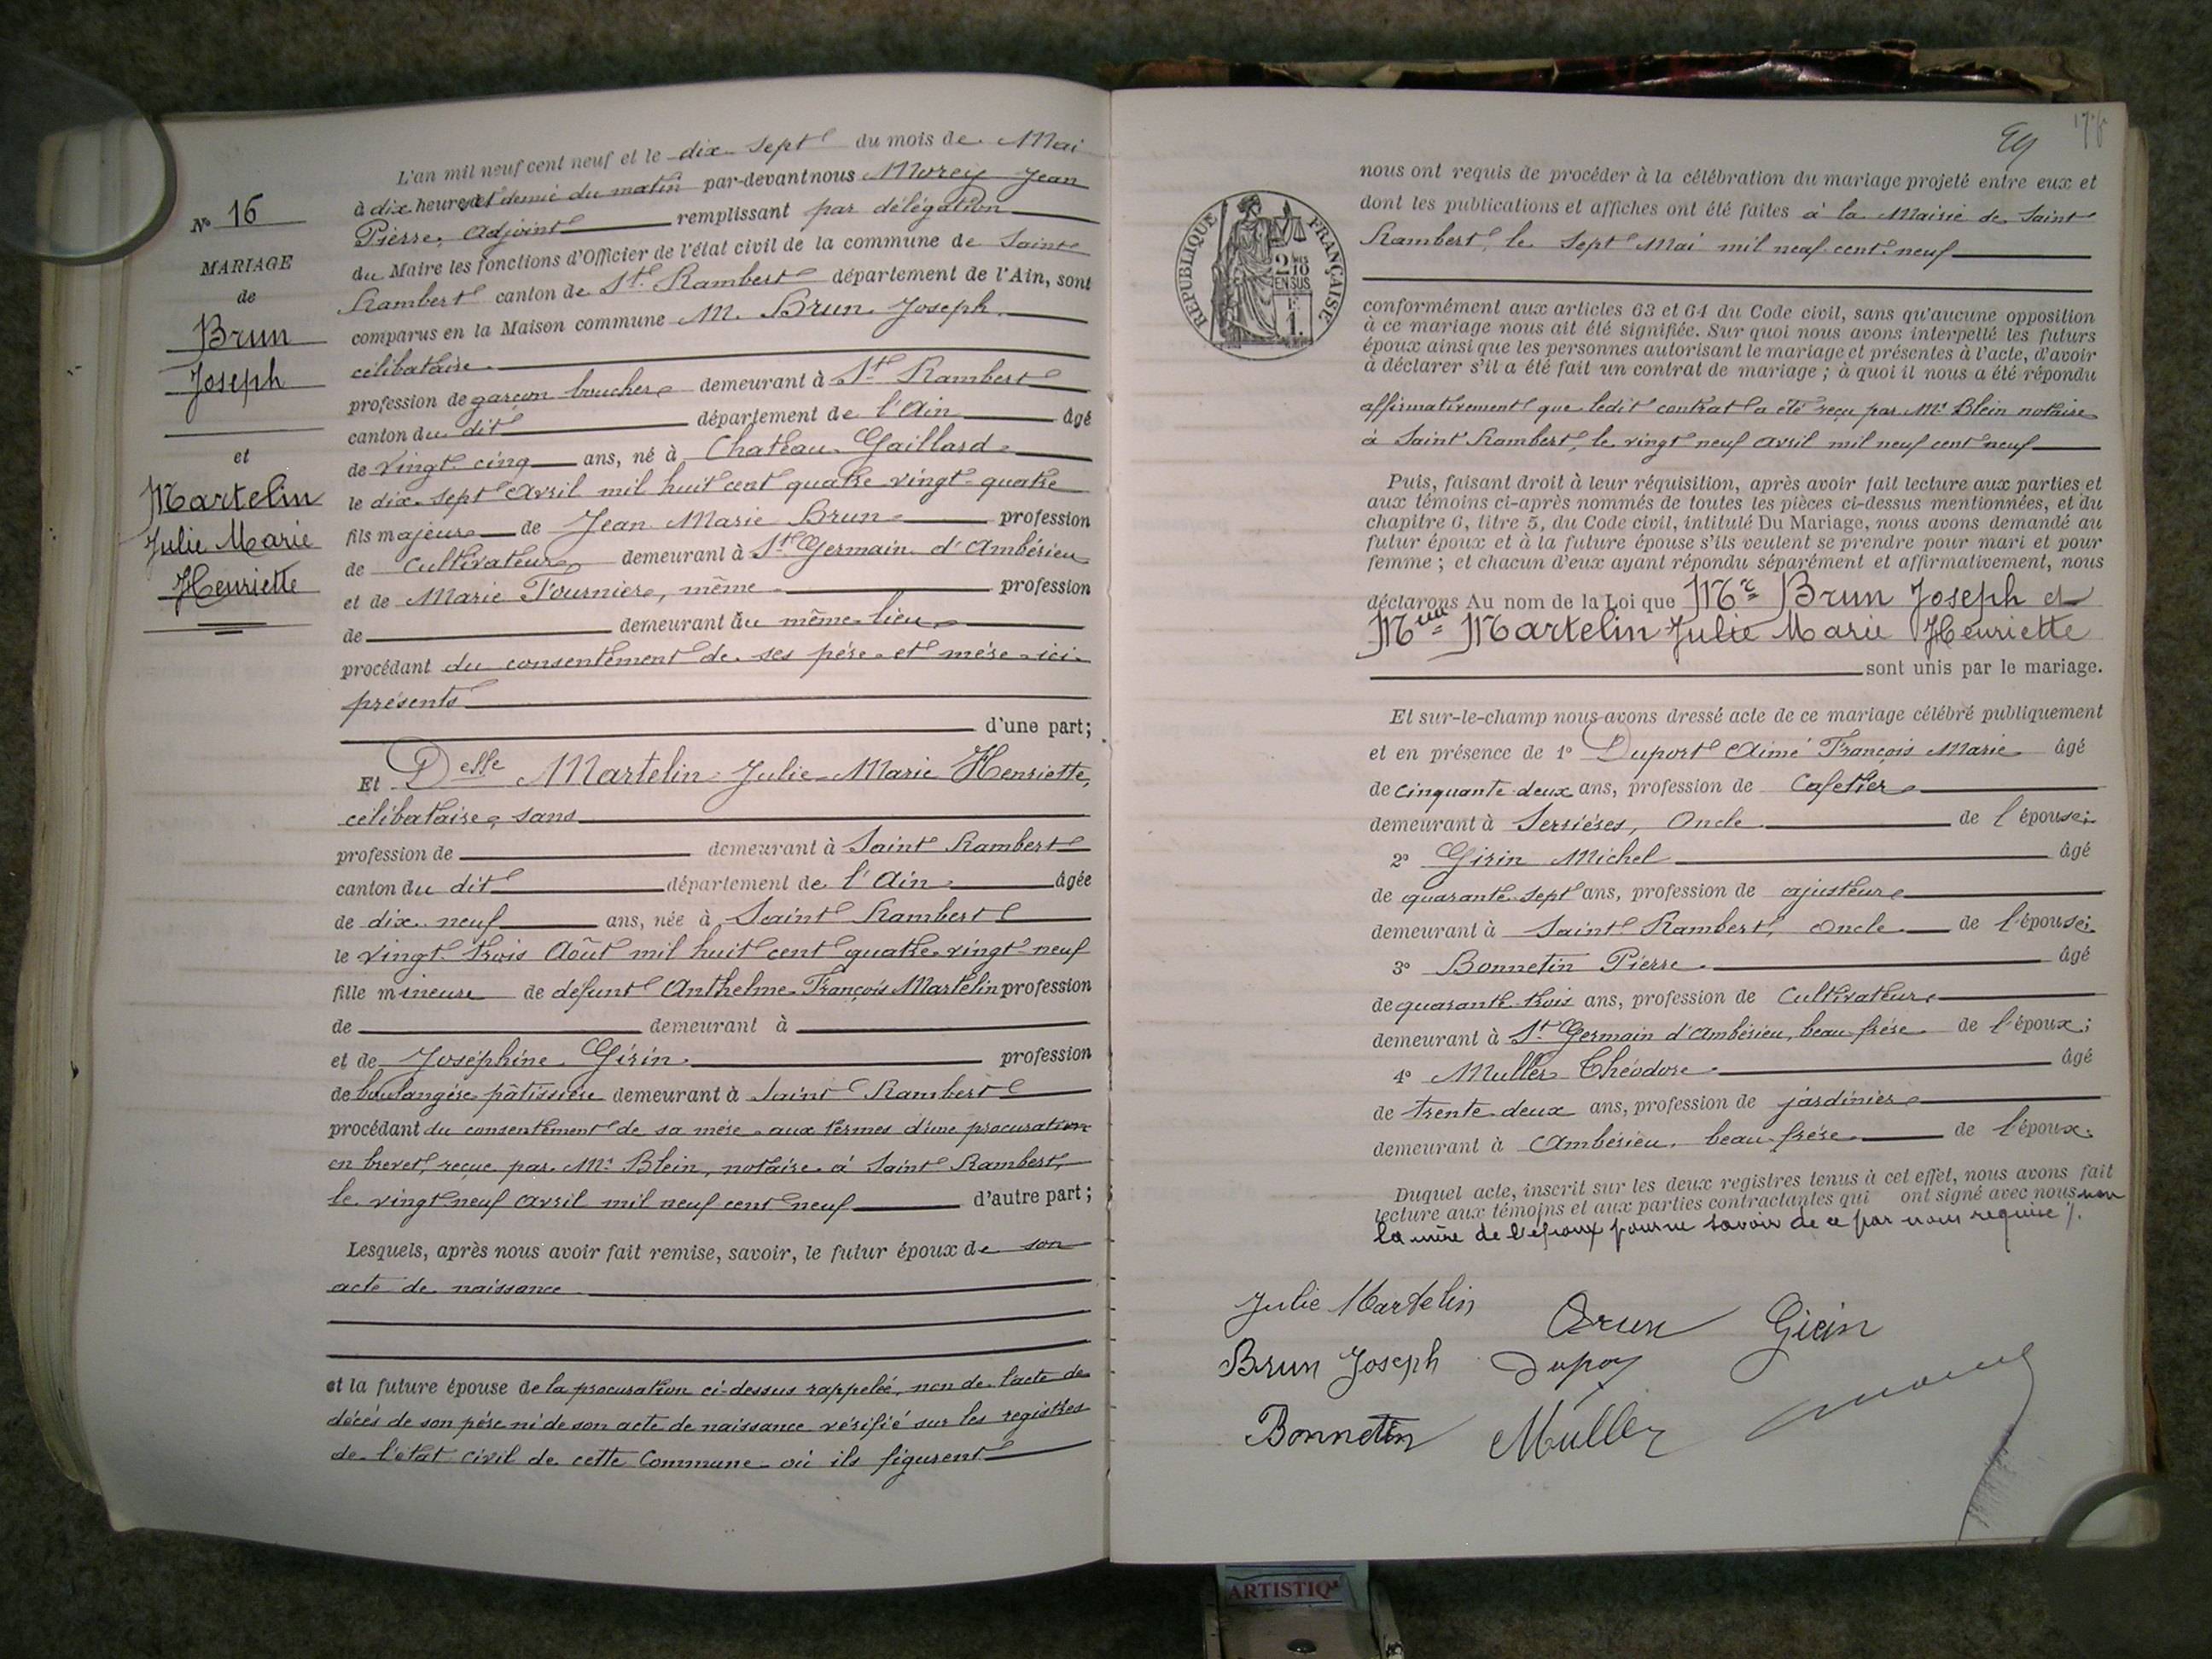 N° 16
MARIAGE
de
Brun
Joseph
et
Martelin
Julie Marie
Henriette
L'an mil neuf cent neuf et le dix-sept du mois de Mai
à dix heures et demie du matin par-devant nous Morey Jean
Pierre, Adjoint remplissant par délégation
du Maire les fonctions d'Officier de l'état civil de la commune de Saint
Rambert canton de St. Rambert département de l'Ain, sont
comparus en la Maison commune M. Brun Joseph
célibataire
profession de garçon boucher demeurant à St. Rambert
canton du dit département de l'Ain âgé
de vingt-cinq ans, né à Chateau-Gaillard
le dix-sept Avril mil huit cent quatre vingt-quatre
fils majeur de Jean Marie Brun profession
de cultivateur demeurant à St. Germain d'Ambérieu
et de Marie Fournier, même profession
de demeurant au même lieu
procédant du consentement de ses père et mère ici
présents
d'une part;
Et Delle Martelin Julie Marie Henriette,
célibataire, sans
profession de demeurant à Saint Rambert
canton du dit département de l'Ain âgée
de dix-neuf ans, née à Saint Rambert
le vingt-trois Août mil huit cent quatre-vingt-neuf
fille mineure de defunt Anthelme François Martelin profession
de demeurant à
et de Joséphine Girin profession
de boulangère pâtissière demeurant à Saint Rambert
procédant du consentement de sa mère aux termes d'une procuration
en brevet, reçue par Me Blein, notaire à Saint Rambert,
le vingt neuf Avril mil neuf cent neuf d'autre part;
Lesquels, après nous avoir fait remise, savoir, le futur époux de son
acte de naissance
et la future épouse de la procuration ci-dessus rappelée, non de l'acte de
décès de son père ni de son acte de naissance vérifié sur les registres
de l'état civil de cette Commune où ils figurent
89
RÉPUBLIQUE FRANÇAISE
2/10
EN SUS
1 F.
nous ont requis de procéder à la célébration du mariage projeté entre eux et
dont les publications et affiches ont été faites à la Mairie de Saint
Rambert, le sept Mai mil neuf cent neuf
conformément aux articles 63 et 64 du Code civil, sans qu'aucune opposition
à ce mariage nous ait été signifiée. Sur quoi nous avons interpellé les futurs
époux ainsi que les personnes autorisant le mariage et présentes à l'acte, d'avoir
à déclarer s'il a été fait un contrat de mariage ; à quoi il nous a été répondu
affirmativement que ledit contrat a été reçu par Me Blein notaire
à Saint Rambert, le vingt neuf Avril mil neuf cent neuf
Puis, faisant droit à leur réquisition, après avoir fait lecture aux parties et
aux témoins ci-après nommés de toutes les pièces ci-dessus mentionnées, et du
chapitre 6, titre 5, du Code civil, intitulé Du Mariage, nous avons demandé au
futur époux et à la future épouse s'ils veulent se prendre pour mari et pour
femme ; et chacun d'eux ayant répondu séparément et affirmativement, nous
déclarons Au nom de la Loi que Mr Brun Joseph et
Melle Martelin Julie Marie Henriette
sont unis par le mariage.
Et sur-le-champ nous avons dressé acte de ce mariage célébré publiquement
et en présence de 1° Duport Aimé François Marie âgé
de cinquante-deux ans, profession de Cafetier
demeurant à Serrières, Oncle de l'épouse;
2° Girin Michel âgé
de quarante-sept ans, profession de ajusteur
demeurant à Saint Rambert, Oncle de l'épouse;
3° Bonnetin Pierre âgé
de quarante-trois ans, profession de Cultivateur
demeurant à St. Germain d'Ambérieu, beau-frère de l'époux;
4° Muller Théodore âgé
de trente-deux ans, profession de jardinier
demeurant à Ambérieu, beau-frère de l'époux.
Duquel acte, inscrit sur les deux registres tenus à cet effet, nous avons fait
lecture aux témoins et aux parties contractantes qui ont signé avec nous non
la mère de l'époux pour ne savoir de ce par nous requise
Julie Martelin Brun Girin
Brun Joseph
Bonnetin Müller
ARTISTIQ